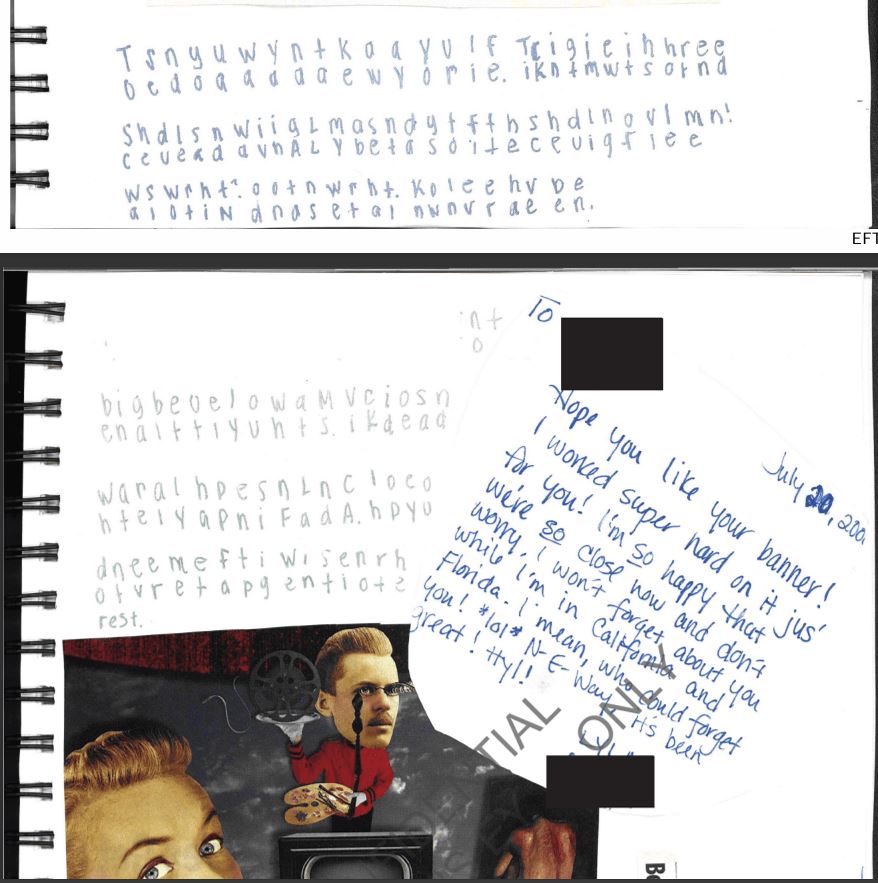 Tsnyuwyntkoayulf Trigieihhree
ocdoaadaaewyorie. ikntmwtsornd
ShdlsnwiigLmasndytffhshdlnovlmn!
ceveadavnALybetasoitecevigfiee
wswrht? ootnwrht. Koleehvbe
alotiN dnasetal nwnvraeen.
EFT
nt
o
bigbeoelowaMVciosn
enalttiyuhts. ikdead
waralhpesnLnCloco
htelyapniFadA.hpyu
dneemeftiwisenrh
otvretapgentiote
rest.
To
July 20, 200
Hope you like your banner!
I worked super hard on it jus'
for you! I'm so happy that
we're so close now and don't
worry, I won't forget about you
while I'm in California and
Florida. I mean, who could forget
you! *lol* N-E-Way it's been
great! ttyl!
TIAL
ONLY